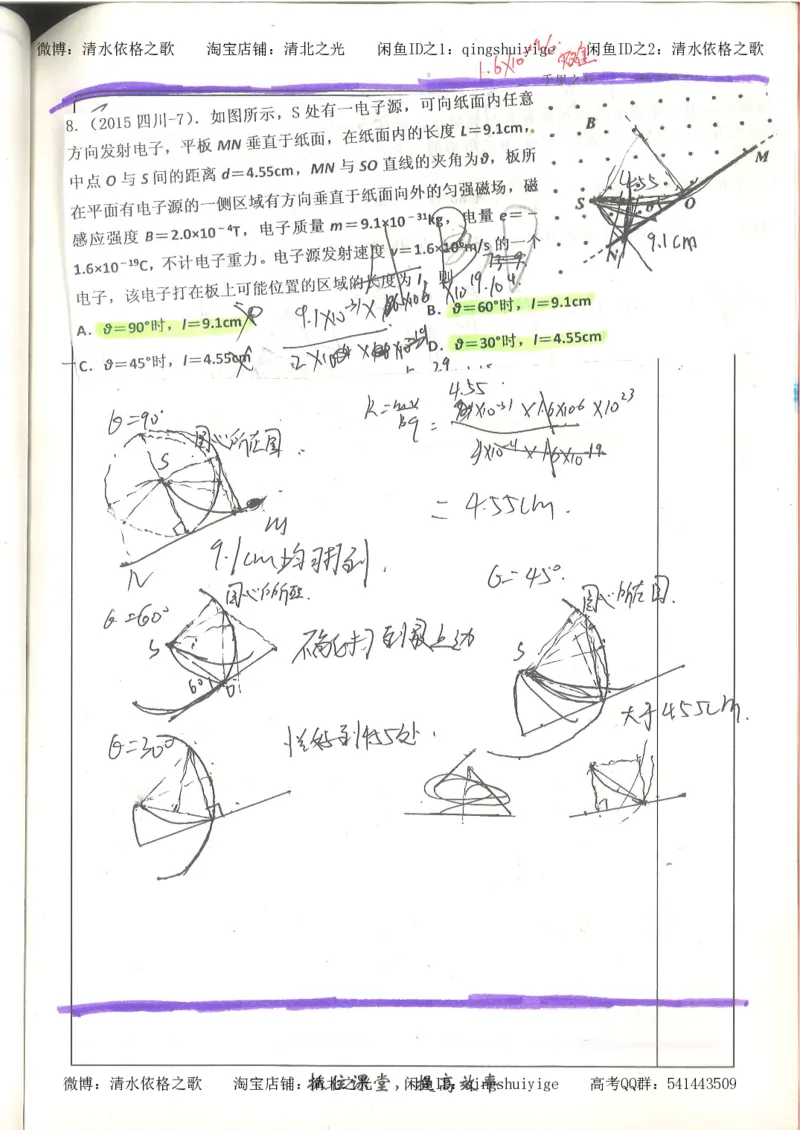 微博：清水依格之歌 淘宝店铺：清北之光 闲鱼ID之1：qingshuiyige 闲鱼ID之2：清水依格之歌
8.（2015 四川-7）．如图所示，S 处有一电子源，可向纸面内任意
方向发射电子，平板 MN 垂直于纸面，在纸面内的长度 L＝9.1cm，
中点 O 与 S 间的距离 d＝4.55cm，MN 与 SO 直线的夹角为θ，板所
在平面有电子源的一侧区域有方向垂直于纸面向外的匀强磁场，磁
感应强度 B＝2.0×10－4T，电子质量 m＝9.1×10－31Kg，电量 e＝－
1.6×10－19C，不计电子重力。电子源发射速度 v＝1.6×106m/s 的一个
电子，该电子打在板上可能位置的区域的长度为 l，则
A. θ＝90°时，l＝9.1cm
B. θ＝60°时，l＝9.1cm
C. θ＝45°时，l＝4.55cm
D. θ＝30°时，l＝4.55cm
B
M
S
O
N
4.55
9.1cm
R=mv/Bq
= 4.55cm.
θ=90°
圆心所在圆
S
M
N
9.1cm均可打到.
θ=60°
圆心所在
S
60
O
不能打到最上边
θ=45°.
圆心所在圆.
S
大于4.55cm.
θ=30°
恰好到4.55处.
微博：清水依格之歌 淘宝店铺： 抓住课堂，提高效率 qingshuiyige 高考QQ群：541443509